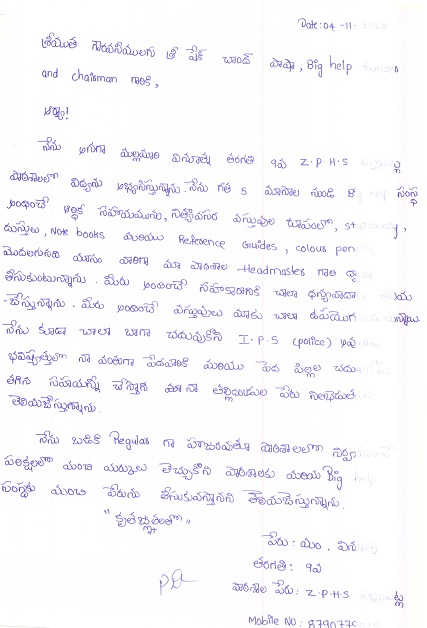 Date: 04 -11-
శ్రీయుత గౌరవనీయులుగు శ్రీ షేక్ చాంద్ పాషా, Big help founder
and chairman గారికి,
అయ్యా!
నేను అనగా మల్లమారి వినూత్న తరగతి 9వ Z.P.H.S
పాఠశాలలో విద్యను అభ్యసిస్తున్నాను. నేను గత 5 మాసాల నుండి Big help సంస్థ
అందించే ఆర్థిక సహాయమును, నిత్యావసర వస్తువుల రూపంలో, stationary,
దుస్తులు, Note books మరియు Reference Guides, colour pen
మొదలగునవి మాసం వారిగా మా పాఠశాల Headmaster గారి ద్వారా
తీసుకుంటున్నాను. మీరు అందించే సహకారానికి చాలా ధన్యవాదాలు తెలియ
-జేస్తున్నాను. మీరు అందించే వస్తువులు మాకు చాలా ఉపయోగ
నేను కూడా చాలా బాగా చదువుకొని I.P.S (police) అయి
భవిష్యత్తులో నా వంతుగా పేదవారికి మరియు పేద పిల్లల
తగిన సహాయాన్ని చేస్తానని మా నా తల్లిదండ్రుల పేరు నిలబెడుతానని
తెలియజేస్తున్నాను.
నేను బడికి Regular గా హాజరవుతూ పాఠశాలలోని నిర్వహించే
పరీక్షలలో మంచి మార్కులు తెచ్చుకొని పాఠశాలకు మరియు Big help
సంస్థకు మంచి పేరును తీసుకువస్తానని తెలియజేస్తున్నాను.
"కృతజ్ఞతలతో"
పేరు: యం. విన
తరగతి: 9వ
పాఠశాల పేరు: Z.P.H.S
Mobile NO: 8790775